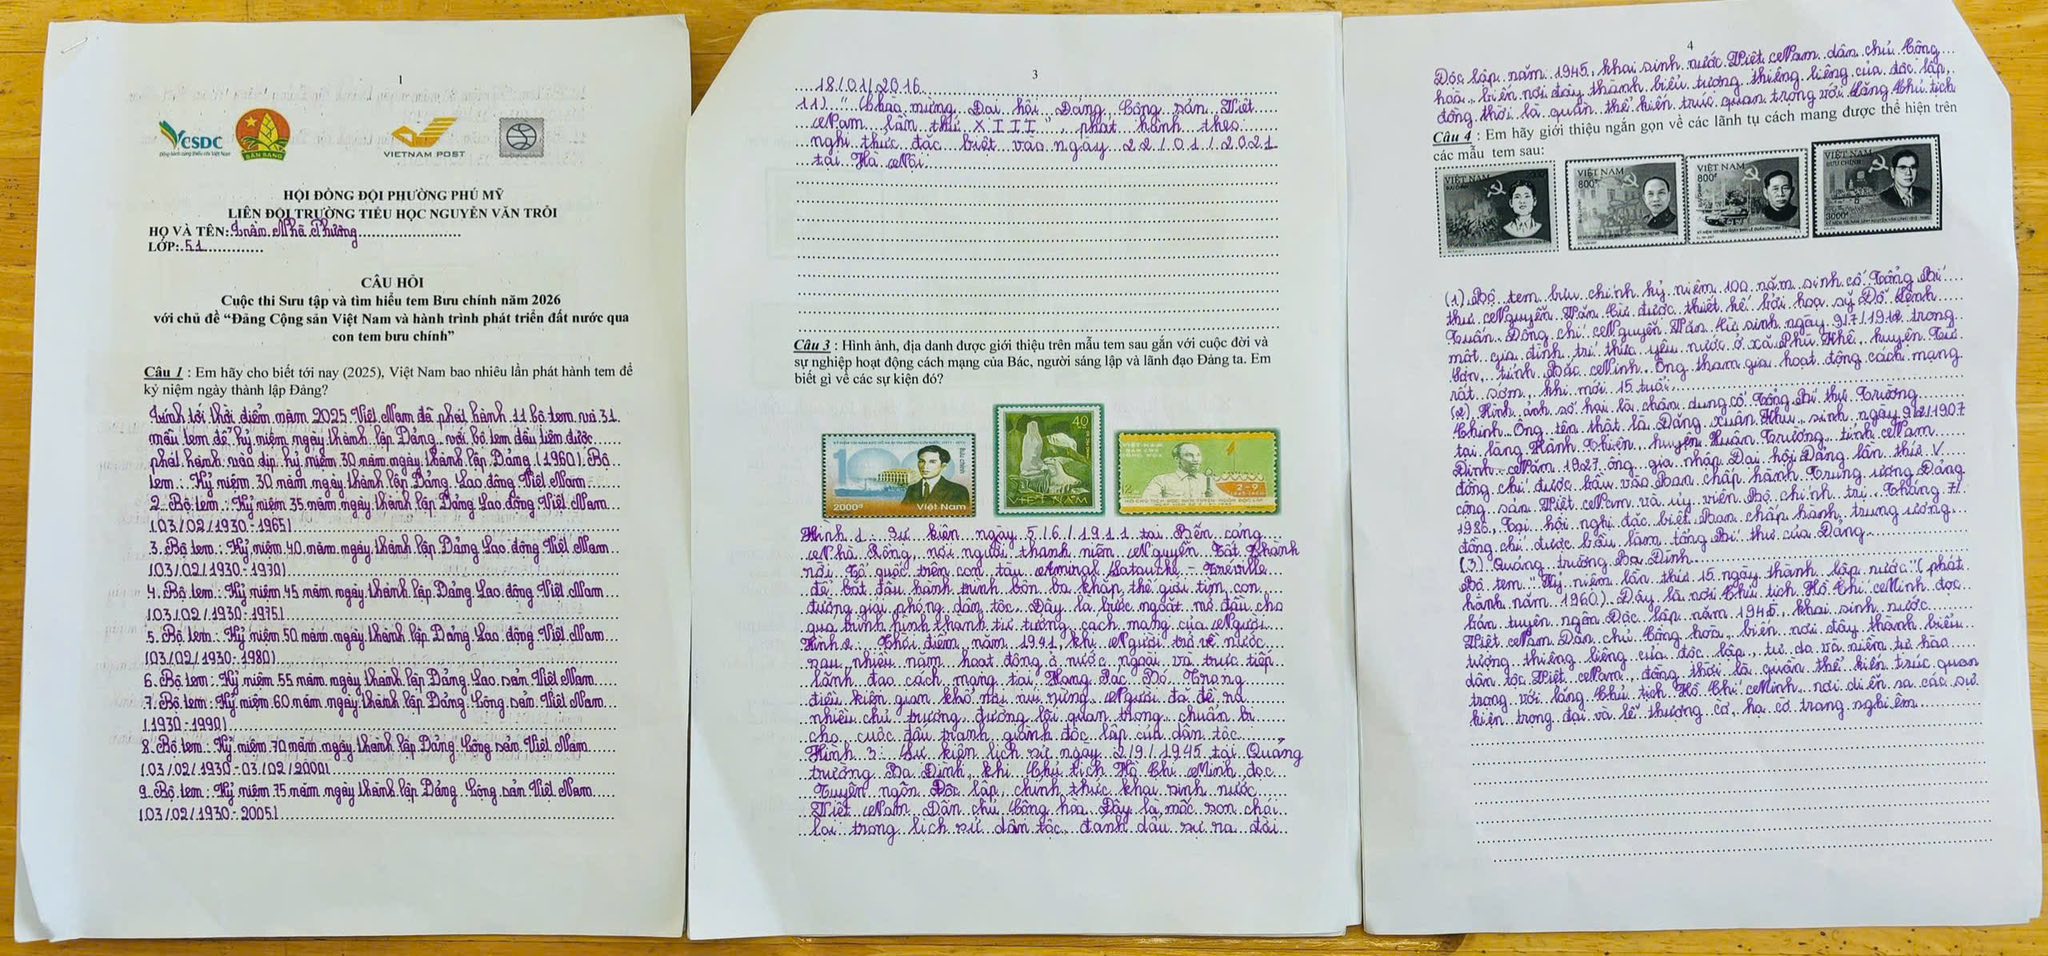 1
CSDC
Đồng hành cùng thiếu nhi Việt Nam
SẴN SÀNG
VIETNAM POST
HỘI ĐỒNG ĐỘI PHƯỜNG PHÚ MỸ
LIÊN ĐỘI TRƯỜNG TIỂU HỌC NGUYỄN VĂN TRỖI
HỌ VÀ TÊN: Trần Nhã Phương
LỚP: 5.1
CÂU HỎI
Cuộc thi Sưu tập và tìm hiểu tem Bưu chính năm 2026
với chủ đề “Đảng Cộng sản Việt Nam và hành trình phát triển đất nước qua
con tem bưu chính”
Câu 1 : Em hãy cho biết tới nay (2025), Việt Nam bao nhiêu lần phát hành tem để
kỷ niệm ngày thành lập Đảng?
Tính tới thời điểm năm 2025 Việt Nam đã phát hành 11 bộ tem và 31
mẫu tem để kỷ niệm ngày thành lập Đảng với bộ tem đầu tiên được
phát hành vào dịp kỷ niệm 30 năm ngày thành lập Đảng (1960). Bộ
tem: Kỷ niệm 30 năm ngày thành lập Đảng Lao động Việt Nam
2. Bộ tem: Kỷ niệm 35 năm ngày thành lập Đảng Lao động Việt Nam
(03/02/1930-1965)
3. Bộ tem: Kỷ niệm 40 năm ngày thành lập Đảng Lao động Việt Nam
(03/02/1930-1970)
4. Bộ tem: Kỷ niệm 45 năm ngày thành lập Đảng Lao động Việt Nam
(03/02/1930-1975)
5. Bộ tem: Kỷ niệm 50 năm ngày thành lập Đảng Lao động Việt Nam
(03/02/1930-1980)
6. Bộ tem: Kỷ niệm 55 năm ngày thành lập Đảng Lao sản Việt Nam
7. Bộ tem: Kỷ niệm 60 năm ngày thành lập Đảng Cộng sản Việt Nam
(1930-1990)
8. Bộ tem: Kỷ niệm 70 năm ngày thành lập Đảng Cộng sản Việt Nam
(03/02/1930-03/02/2000)
9. Bộ tem: Kỷ niệm 75 năm ngày thành lập Đảng Cộng sản Việt Nam
(03/02/1930-2005)
3
18/01/2016
11) " Chào mừng Đại hội Đảng Cộng sản Việt
Nam lần thứ XIII , phát hành theo
nghi thức đặc biệt vào ngày 22/01/2021
tại Hà Nội
Câu 3 : Hình ảnh, địa danh được giới thiệu trên mẫu tem sau gắn với cuộc đời và
sự nghiệp hoạt động cách mạng của Bác, người sáng lập và lãnh đạo Đảng ta. Em
biết gì về các sự kiện đó?
100
Bưu chính
2000đ Việt Nam
40
VIỆT NAM
VIỆT NAM
DÂN CHỦ
CỘNG HÒA
2-9
Hình 1: Sự kiện ngày 5/6/1911 tại Bến cảng
Nhà Rồng, nơi người thanh niên Nguyễn Tất Thành
rời Tổ quốc trên con tàu Amiral Latouche - Treville
để bắt đầu hành trình bôn ba khắp thế giới tìm con
đường giải phóng dân tộc. Đây là bước ngoặt mở đầu cho
quá trình hình thành tư tưởng cách mạng của Người
Hình 2: Thời điểm năm 1941, khi Người trở về nước
sau nhiều năm hoạt động ở nước ngoài và trực tiếp
lãnh đạo cách mạng tại Hang Pác Bó. Trong
điều kiện gian khổ nơi núi rừng Người đã đề ra
nhiều chủ trương đường lối quan trọng chuẩn bị
cho cuộc đấu tranh giành độc lập của dân tộc
Hình 3: Sự kiện lịch sử ngày 2/9/1945 tại Quảng
trường Ba Đình, khi Chủ tịch Hồ Chí Minh đọc
Tuyên ngôn Độc lập, chính thức khai sinh nước
Việt Nam Dân chủ Cộng hòa. Đây là mốc son chói
lọi trong lịch sử dân tộc, đánh dấu sự ra đời
4
Độc lập năm 1945, khai sinh nước Việt Nam dân chủ Cộng
hoà, biến nơi đây thành biểu tượng thiêng liêng của độc lập,
đồng thời là quần thể kiến trúc quan trọng với Lăng Chủ tịch
Câu 4 : Em hãy giới thiệu ngắn gọn về các lãnh tụ cách mạng được thể hiện trên
các mẫu tem sau:
VIỆT NAM
VIỆT NAM
800đ
VIỆT NAM
800đ
VIỆT NAM
BƯU CHÍNH
3000đ
(1) Bộ tem bưu chính kỷ niệm 100 năm sinh cố Tổng Bí
thư Nguyễn Văn Cừ được thiết kế bởi hoạ sỹ Đỗ Lệnh
Tuấn. Đồng chí Nguyễn Văn Cừ sinh ngày 9/7/1912 trong
một gia đình trí thức yêu nước ở xã Phù Khê, huyện Từ
Sơn, tỉnh Bắc Ninh. Ông tham gia hoạt động cách mạng
rất sớm, khi mới 15 tuổi.
(2) Hình ảnh số hai là chân dung cố Tổng Bí thư Trường
Chinh. Ông tên thật là Đặng Xuân Khu, sinh ngày 9/2/1907
tại làng Hành Thiện, huyện Xuân Trường, tỉnh Nam
Định. Năm 1927 ông gia nhập Đại hội Đảng lần thứ V.
đồng chí được bầu vào Ban chấp hành Trung ương Đảng
cộng sản Việt Nam và ủy viên Bộ chính trị. Tháng 7/
1986, Tại hội nghị đặc biệt Ban chấp hành trung ương
đồng chí được bầu làm tổng Bí thư của Đảng
(3) Quảng trường Ba Đình
Bộ tem "Kỷ niệm lần thứ 15 ngày thành lập nước" (phát
hành năm 1960). Đây là nơi Chủ tịch Hồ Chí Minh đọc
bản tuyên ngôn Độc lập năm 1945, khai sinh nước
Việt Nam Dân chủ Cộng hoà, biến nơi đây thành biểu
tượng thiêng liêng của độc lập, tự do và niềm tự hào
dân tộc Việt Nam, đồng thời là quần thể kiến trúc quan
trọng với lăng Chủ tịch Hồ Chí Minh, nơi diễn ra các sự
kiện trọng đại và lễ thượng cờ, hạ cờ trang nghiêm